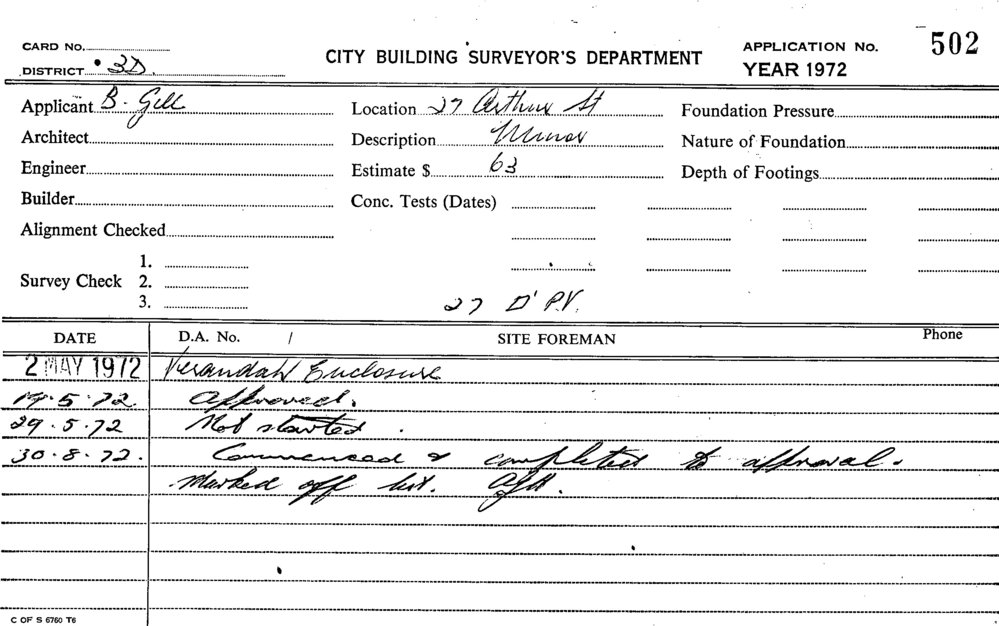 CARD No. APPLICATION No. 502
DISTRICT 3D. CITY BUILDING SURVEYOR'S DEPARTMENT YEAR 1972
Applicant B. Gill Location 27 Arthur St Foundation Pressure
Architect Description Minor Nature of Foundation
Engineer Estimate $ 63 Depth of Footings
Builder Conc. Tests (Dates)
Alignment Checked
1.
Survey Check 2.
3. 27 D' P.V.
DATE D.A. No. / SITE FOREMAN Phone
2 MAY 1972 Verandah Enclosure
19.5.72. Approved.
29.5.72 Not started.
30.8.72. Commenced & completed to approval.
Marked off list.
C OF S 6760 T6